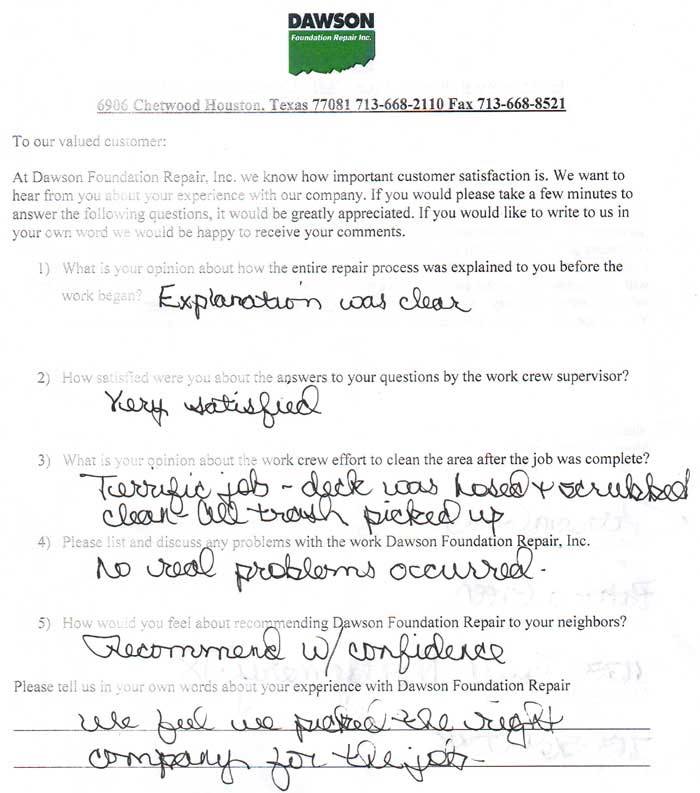 DAWSON
Foundation Repair Inc.
6906 Chetwood Houston, Texas 77081 713-668-2110 Fax 713-668-8521
To our valued customer:
At Dawson Foundation Repair, Inc. we know how important customer satisfaction is. We want to
hear from you about your experience with our company. If you would please take a few minutes to
answer the following questions, it would be greatly appreciated. If you would like to write to us in
your own word we would be happy to receive your comments.
1) What is your opinion about how the entire repair process was explained to you before the
work began? Explanation was clear
2) How satisfied were you about the answers to your questions by the work crew supervisor?
Very satisfied
3) What is your opinion about the work crew effort to clean the area after the job was complete?
Terrific job - deck was hosed + scrubbed
clean - All trash picked up
4) Please list and discuss any problems with the work Dawson Foundation Repair, Inc.
No real problems occurred.
5) How would you feel about recommending Dawson Foundation Repair to your neighbors?
Recommend w/ confidence
Please tell us in your own words about your experience with Dawson Foundation Repair
We feel we picked the right
company for the job.